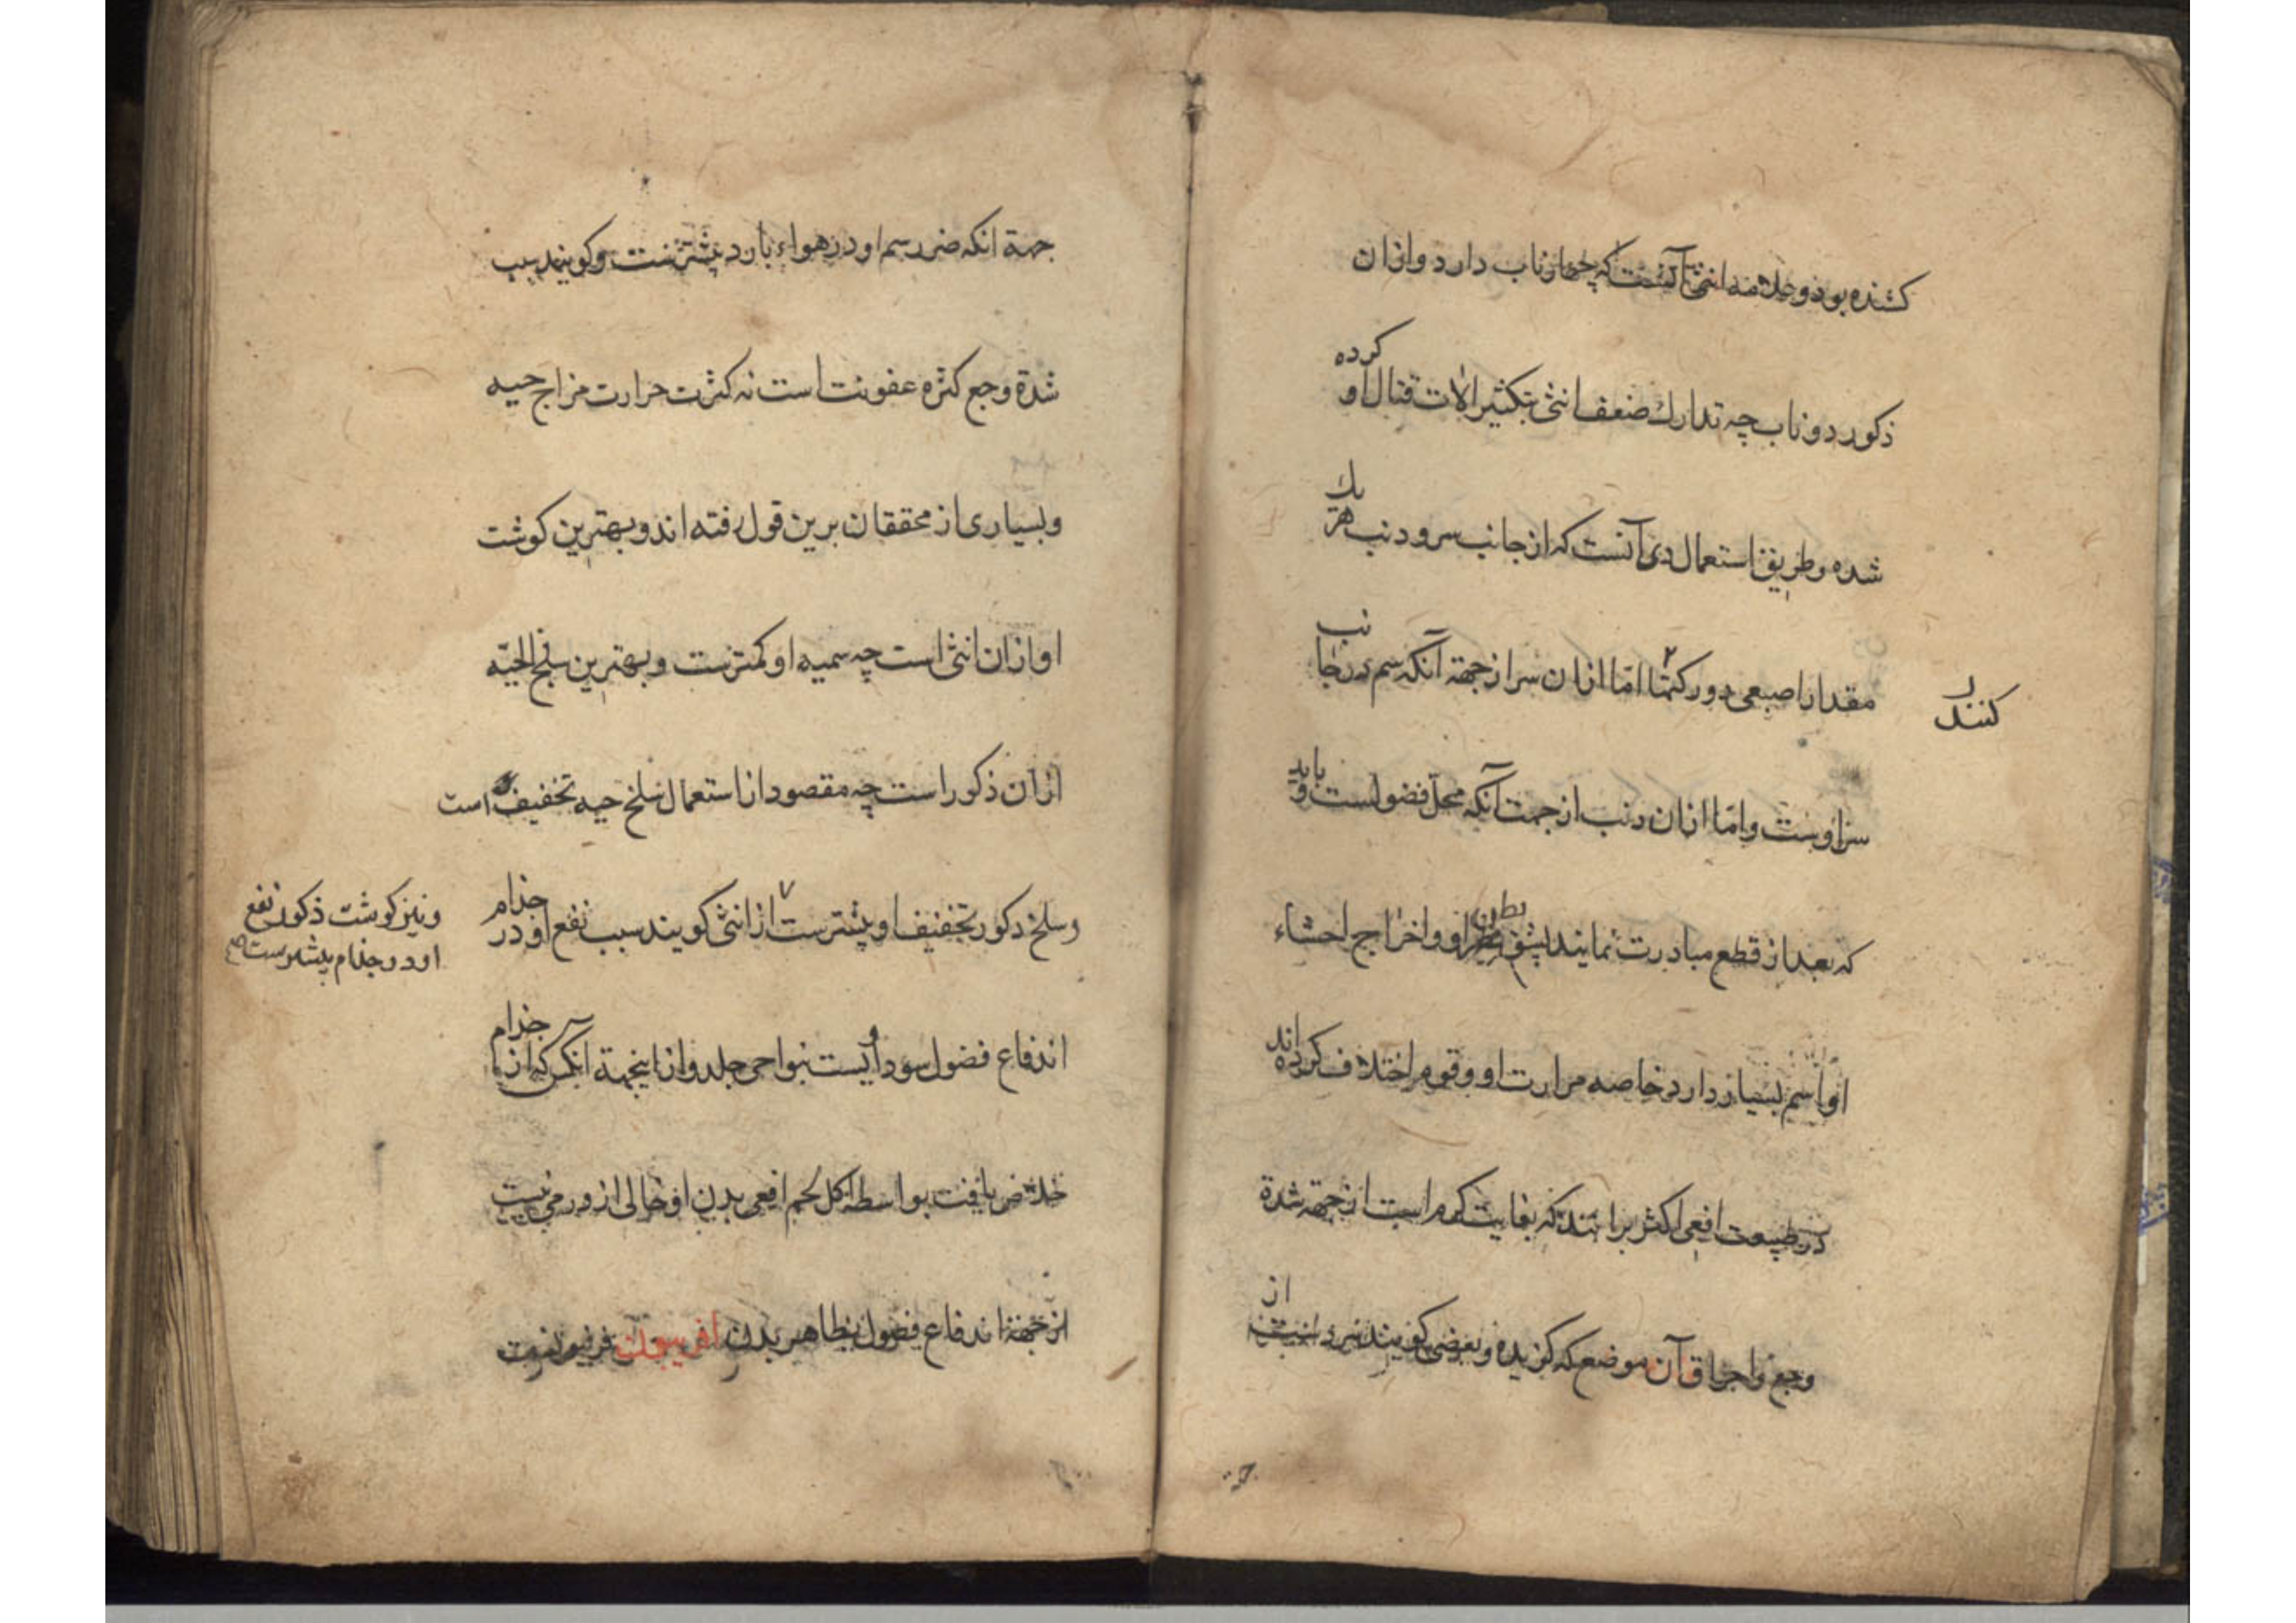 کشنده بود و علامه انثی آنست که چهار ناب دارد و ازان
ذکور دو ناب چه تدارك ضعف انثی بتکثیر الات قتال او کرده
شده و طریق استعمال وی آنست که از جانب سر و دنب هر یك
مقدار اصبعی دور کنند اما ازان سر از جهته آنکه سم در جانب
کنند
سر اوست و امّا ازان دنب از جهت آنکه محلّ فضولست و باید
که بعد از قطع مبادرت نمایند بشق بطن او و اخراج احشاء
او اسم بسیار دارد خاصه مرارت او و قوم اختلاف کرده اند
در طبیعت افعی اکثر برانند که بغایت گرم است از جهته شدة
وجع و احراق آن موضع که گزیده و بعضی گویند سرد است از
جهة انکه ضرر سم او در هواء بارد بیشترست و کویند سبب
شدة وجع کثره عفونت است نه کثرت حرارت مزاج حیه
و بسیاری از محققان برین قول رفته اند و بهترین کوشت
او ازان انثی است چه سمیه او کمترست و بهترین سلخ الحیّه
ازان ذکور است چه مقصود از استعمال سلخ حیه تخفیف است
و سلخ ذکور تجفیف او بیشترست از انثی کویند سبب نفع او در جذام
و نیز کوشت ذکور نفع
او در جذام بیشترست صح
اندفاع فضول سوداویست بنواحی جلد و از اینجهة آنکس که از جذام
خلاص یافت بواسطه اکل لحم افعی بدن او خالی از ورمی نیست
از جهة اندفاع فضول بظاهر بدن افربیون فرفیونست